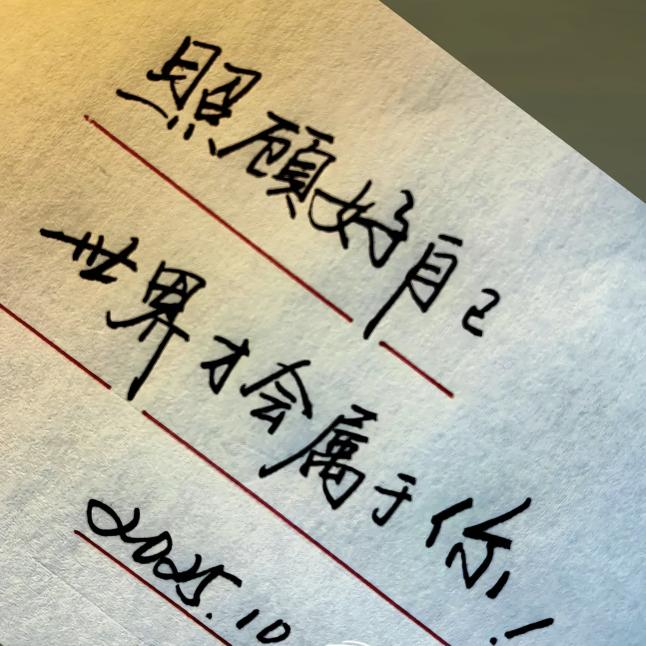 照顾好自己
世界才会属于你!
2025.10